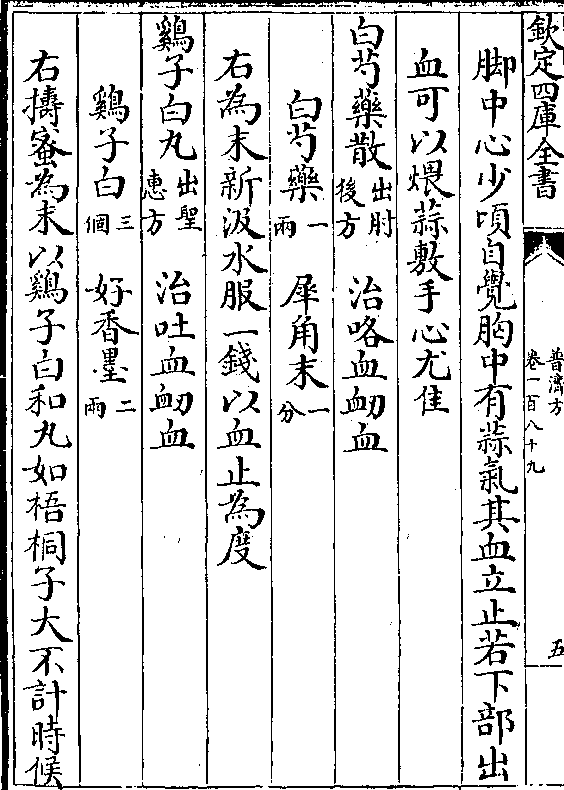 欽定四庫全書
普濟方
卷一百八十九
五
脚中心少頃自覺胸中有蒜氣其血立止若下部出
血可以煨蒜敷手心尤佳
白芍藥散出肘後方 治咯血衂血
白芍藥一兩 犀角末一分
右為末新汲水服一錢以血止為度
鷄子白丸出聖惠方 治吐血衂血
鷄子白三個 好香墨二兩
右擣蜜為末以鷄子白和丸如梧桐子大不計時候